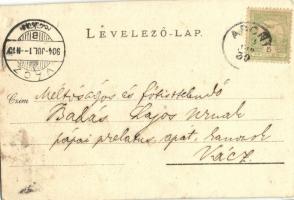 LEVELEZŐ-LAP.
904 JUL. 1
VÁCZ
ABONY
Czim
Méltóságos és főtisztelendő
Badás Lajos urnak
pápai prelatus, apát, kanonok
Vácz